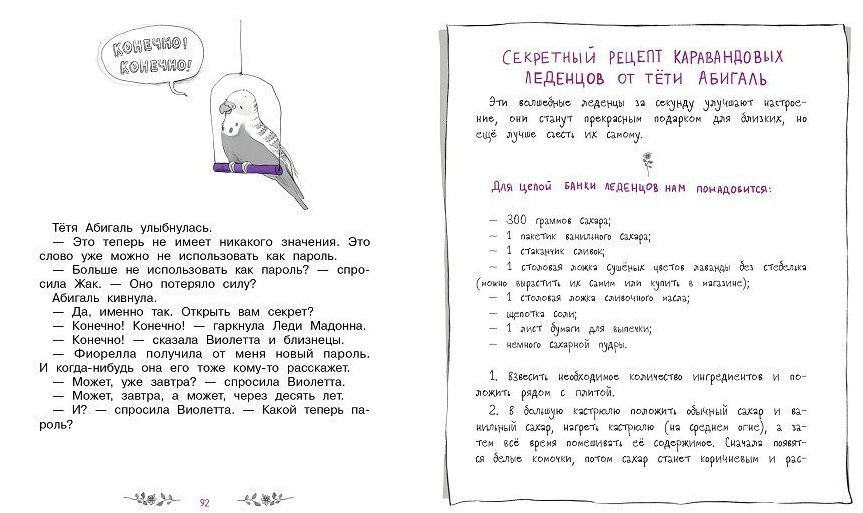 КОНЕЧНО!
КОНЕЧНО!
Тётя Абигаль улыбнулась.
— Это теперь не имеет никакого значения. Это
слово уже можно не использовать как пароль.
— Больше не использовать как пароль? — спро-
сила Жак. — Оно потеряло силу?
Абигаль кивнула.
— Да, именно так. Открыть вам секрет?
— Конечно! Конечно! — гаркнула Леди Мадонна.
— Конечно! — сказала Виолетта и близнецы.
— Фиорелла получила от меня новый пароль.
И когда-нибудь она его тоже кому-то расскажет.
— Может, уже завтра? — спросила Виолетта.
— Может, завтра, а может, через десять лет.
— И? — спросила Виолетта. — Какой теперь па-
роль?
92
СЕКРЕТНЫЙ РЕЦЕПТ КАРАВАНДОВЫХ
ЛЕДЕНЦОВ ОТ ТЁТИ АБИГАЛЬ
Эти волшебные леденцы за секунду улучшают настрое-
ние, они станут прекрасным подарком для близких, но
ещё лучше съесть их самому.
ДЛЯ ЦЕЛОЙ БАНКИ ЛЕДЕНЦОВ НАМ ПОНАДОБИТСЯ:
— 300 граммов сахара;
— 1 пакетик ванильного сахара;
— 1 стаканчик сливок;
— 1 столовая ложка сушёных цветов лаванды без стебелька
(можно вырастить их самим или купить в магазине);
— 1 столовая ложка сливочного масла;
— щепотка соли;
— 1 лист бумаги для выпечки;
— немного сахарной пудры.
1. Взвесить необходимое количество ингредиентов и по-
ложить рядом с плитой.
2. В большую кастрюлю положить обычный сахар и ва-
нильный сахар, нагреть кастрюлю (на среднем огне), а за-
тем всё время помешивать её содержимое. Сначала появят-
ся белые комочки, потом сахар станет коричневым и рас-